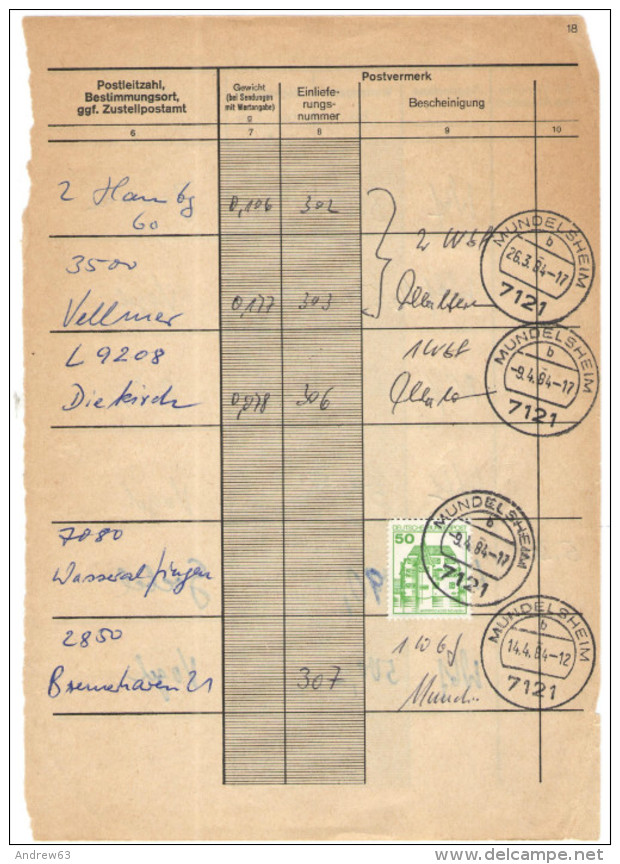 18
Postleitzahl,
Bestimmungsort,
ggf. Zustellpostamt
Gewicht
(bei Sendungen
mit Wertangabe)
g
Postvermerk
Einliefe-
rungs-
nummer
Bescheinigung
6 7 8 9 10
2 Hambg
60
0,106 302
2 Wbf
MUNDELSHEIM
b
26.3.84-17
7121
3500
Vellmar
0,177 303
L 9208
Diekirch
0,078 306
1 Wbf
MUNDELSHEIM
b
-9.4.84-17
7121
7080
Wasseralfingen
50
MUNDELSHEIM
b
-9.4.84-17
7121
2850
Bremerhaven 21
307
1 Wbf
MUNDELSHEIM
b
14.4.84-12
7121
Andrew63
www.delcampe.net